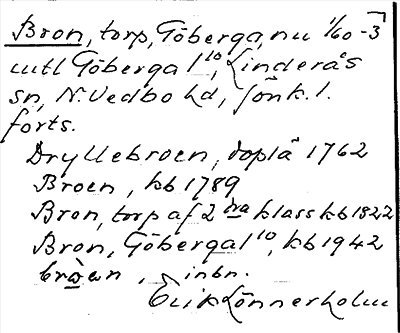 Bron, torp, Göberga, nu 1/60-3
utl Göberga 1¹⁰, Linderås
sn, N. Vedbo hd, Jönk. l.
forts.
Dryllebroen, doplä 1762
Broen, kb 1789
Bron, torp af 2dra klass kb 1822
Bron, Göberga 1¹⁰, kb 1942
bròa̲n, inbn.
Erik Lönnerholm